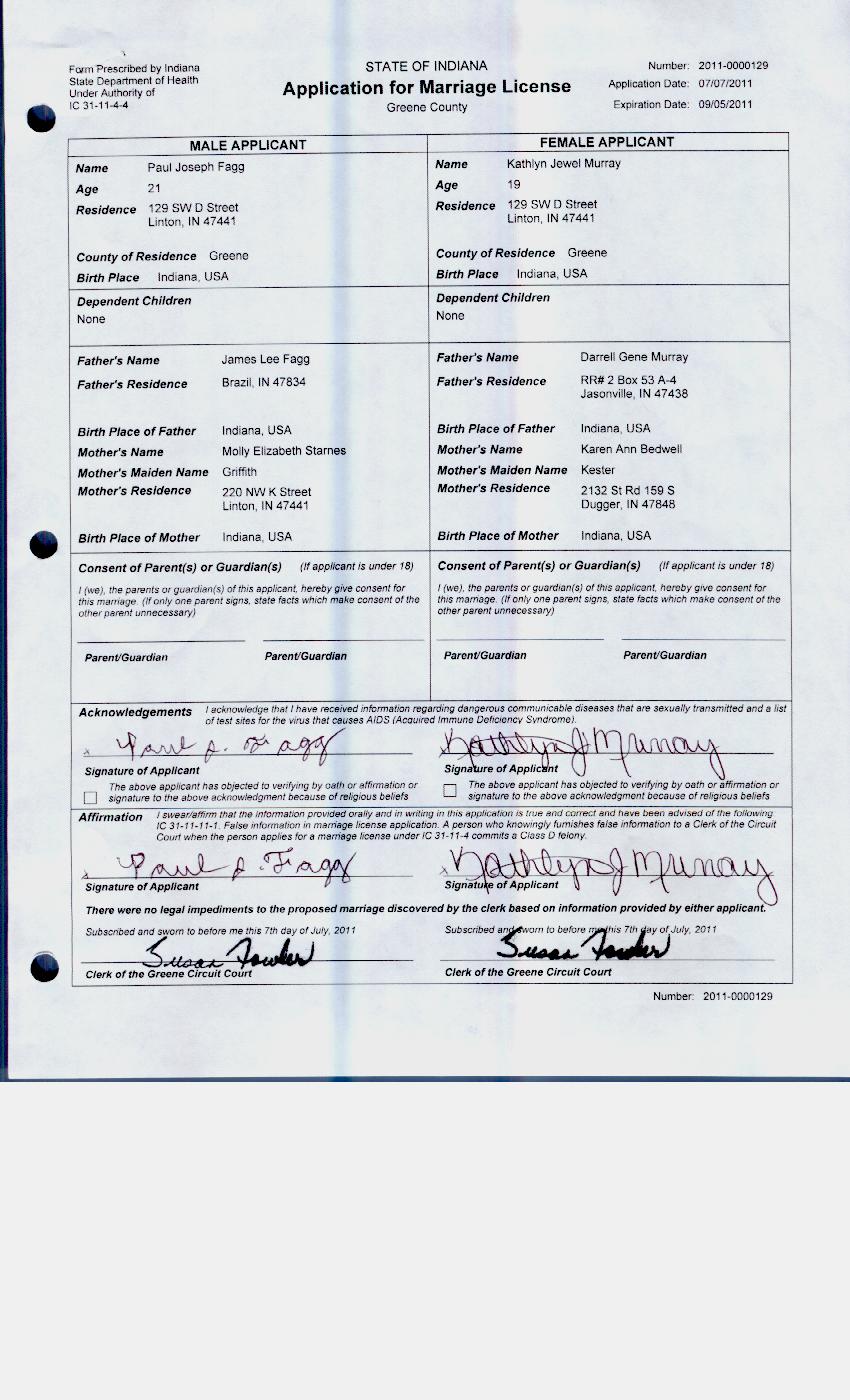 Form Prescribed by Indiana
State Department of Health
Under Authority of
IC 31-11-4-4
STATE OF INDIANA
Application for Marriage License
Greene County
Number: 2011-0000129
Application Date: 07/07/2011
Expiration Date: 09/05/2011
MALE APPLICANT
Name Paul Joseph Fagg
Age 21
Residence 129 SW D Street
Linton, IN 47441
County of Residence Greene
Birth Place Indiana, USA
Dependent Children
None
Father's Name James Lee Fagg
Father's Residence Brazil, IN 47834
Birth Place of Father Indiana, USA
Mother's Name Molly Elizabeth Starnes
Mother's Maiden Name Griffith
Mother's Residence 220 NW K Street
Linton, IN 47441
Birth Place of Mother Indiana, USA
Consent of Parent(s) or Guardian(s) (If applicant is under 18)
I (we), the parents or guardian(s) of this applicant, hereby give consent for
this marriage. (If only one parent signs, state facts which make consent of the
other parent unnecessary)
Parent/Guardian Parent/Guardian
FEMALE APPLICANT
Name Kathlyn Jewel Murray
Age 19
Residence 129 SW D Street
Linton, IN 47441
County of Residence Greene
Birth Place Indiana, USA
Dependent Children
None
Father's Name Darrell Gene Murray
Father's Residence RR# 2 Box 53 A-4
Jasonville, IN 47438
Birth Place of Father Indiana, USA
Mother's Name Karen Ann Bedwell
Mother's Maiden Name Kester
Mother's Residence 2132 St Rd 159 S
Dugger, IN 47848
Birth Place of Mother Indiana, USA
Consent of Parent(s) or Guardian(s) (If applicant is under 18)
I (we), the parents or guardian(s) of this applicant, hereby give consent for
this marriage. (If only one parent signs, state facts which make consent of the
other parent unnecessary)
Parent/Guardian Parent/Guardian
Acknowledgements I acknowledge that I have received information regarding dangerous communicable diseases that are sexually transmitted and a list
of test sites for the virus that causes AIDS (Acquired Immune Deficiency Syndrome).
x Paul J. Fagg
Signature of Applicant
The above applicant has objected to verifying by oath or affirmation or
signature to the above acknowledgment because of religious beliefs
Kathlyn J Murray
Signature of Applicant
The above applicant has objected to verifying by oath or affirmation or
signature to the above acknowledgment because of religious beliefs
Affirmation I swear/affirm that the information provided orally and in writing in this application is true and correct and have been advised of the following
IC 31-11-11-1. False information in marriage license application. A person who knowingly furnishes false information to a Clerk of the Circuit
Court when the person applies for a marriage license under IC 31-11-4 commits a Class D felony.
x Paul J. Fagg
Signature of Applicant
x Kathlyn J Murray
Signature of Applicant
There were no legal impediments to the proposed marriage discovered by the clerk based on information provided by either applicant.
Subscribed and sworn to before me this 7th day of July, 2011
Susan Fowler
Clerk of the Greene Circuit Court
Subscribed and sworn to before me this 7th day of July, 2011
Susan Fowler
Clerk of the Greene Circuit Court
Number: 2011-0000129